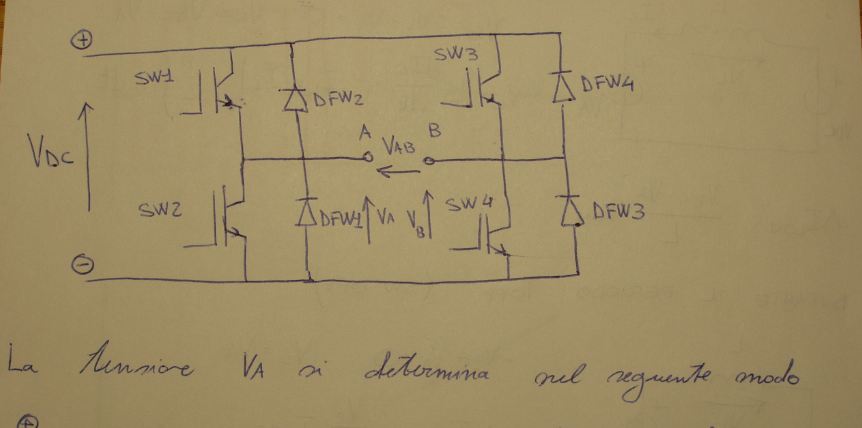 ⊕
SW1
DFW2
SW3
DFW4
A
B
VDC
VAB
SW2
DFW1
VA
VB
SW4
DFW3
⊖
La tensione VA si determina nel seguente modo
⊕